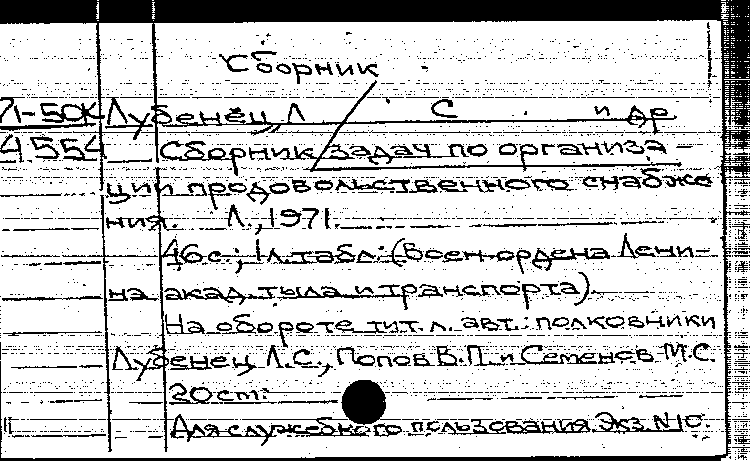 Сборник
71-50К Лубенец, Л С и др
4554 Сборник задач по организа-
ции продовольственного снабже
ния. Л., 1971.
46с.; 1л.табл. (Воен. ордена Лени-
на акад. тыла и транспорта).
На обороте тит. л. авт.: полковники
Лубенец Л.С., Попов В.П. и Семенов М.С.
20cm.
Для служебного пользования. Экз. N 10.